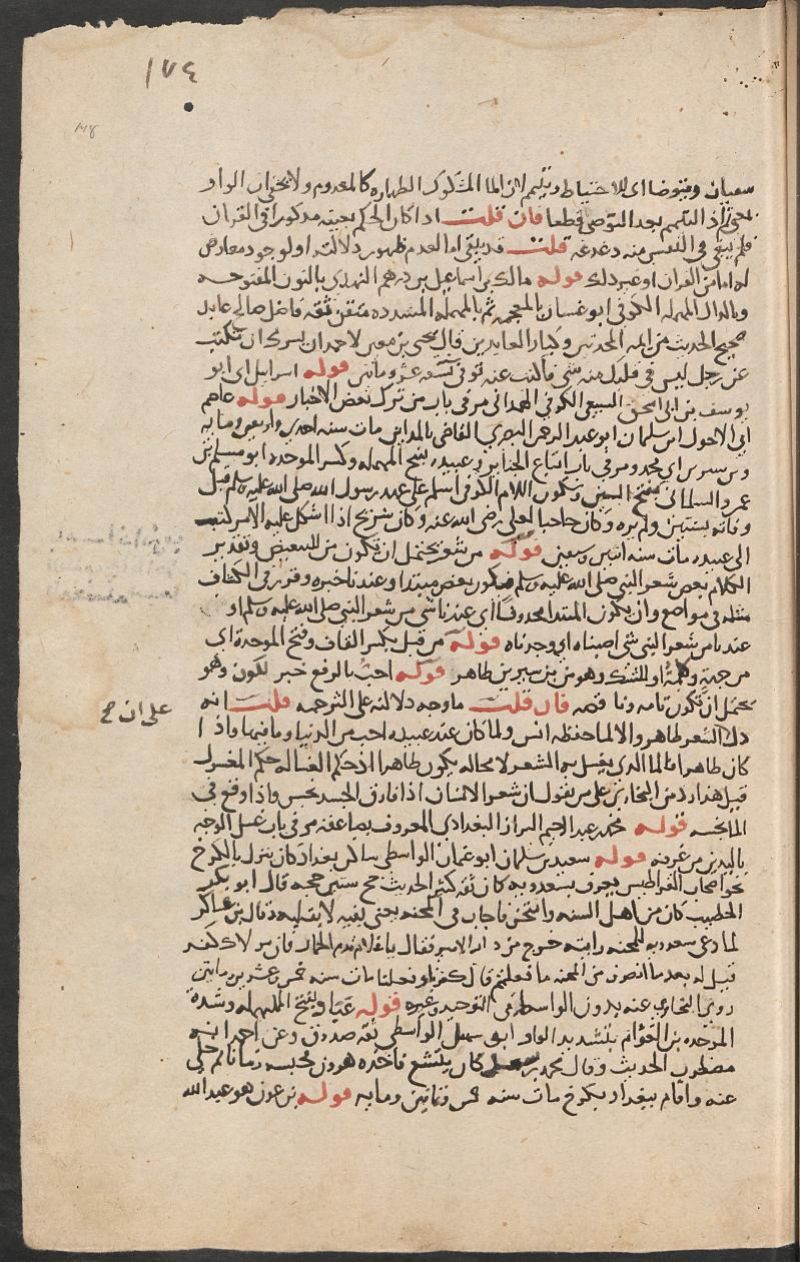 ١٧٤
148
سفيان ويتوضا اى للاحتياط ويتيمم لان الما المشكوك الطهاره كالمعدوم ولا يخفى ان الواو
بمعنى ثم اذ التيمم بعد التوضى قطعا فان قلت اذا كان الحكم بعينه مذكورا فى القران
فلم يبقى فى النفس منه دغدغه قلت قد يبقى اما لعدم ظهور دلالته او لوجود معارض
له اما من القران او غير ذلك قوله مالك بن اسماعيل بن درهم النهدى بالنون المفتوحه
وبالدال المهمله الكوفى ابو غسان بالمعجمه ثم بالمهمله المشدده متقن ثقه فاضل صالح عابد
صحيح الحديث من ايمه المحدثين وكبار العابدين قال يحيى بن معين لاحمد ان يسرك ان تكتب
عن رجل ليس فى قلبك منه شى فاكتب عنه توفى تسعه عشر وماتين قوله اسرائيل اى ابو
يوسف بن ابى اسحق السبيعى الكوفى الهمدانى مر فى باب من ترك بعض الاخبار قوله عاصم
اى الاحول ابن سلمان ابو عبد الرحمن البصرى القاضى بالمداين مات سنه احدى واربعين ومايه
وبن سيرين اى محمد ومر فى باب اتباع الجنايز وعبيده بفتح المهمله وكسر الموحده ابو مسلم بن
عمرو السلمانى بفتح السين وسكون اللام الكوفى اسلم على عهد رسول الله صلى الله عليه وسلم قبل
وفاته بسنتين ولم يره وكان صاحبا لعلى رضى الله عنه وكان شريح اذا اشكل عليه الامر كتب
الى عبيده مات سنه اثنين وسبعين قوله من شعر يحتمل ان تكون من للتبعيض وتقدير
الكلام بعض شعر النبى صلى الله عليه وسلم فيكون بعض مبتدا وعندنا خبره وقرر فى الكشاف
مثله فى مواضع وان يكون المبتدا محذوفا اى عندنا شى من شعر النبى صلى الله عليه وسلم او
عندنا من شعر النبى شى اصبناه اى وجدناه قوله من قبل بكسر القاف وفتح الموحده اى
من جهته وكلمة او للشك وهو من بن سيرين ظاهر قوله احب بالرفع خبر لكون وهو
يحتمل ان تكون تامه وناقصه فان قلت ما وجه دلالته على الترجمه قلت انه
على ان ح
ذلك الشعر طاهر والا لما حفظه انس ولما كان عند عبيده احب من الدنيا وما فيها واذا
كان طاهرا فالما الذى يغسل به الشعر لا محاله يكون طاهرا اذ حكم الغساله حكم المغسول
قيل هذا رد من البخارى على من يقول ان شعر الانسان اذا فارق الجسد نجس واذا وقع فى
الما نجسه قوله محمد عبد الرحيم البزاز البغدادى المعروف بصاعقه مر فى باب غسل الوجه
باليدين من غرفه قوله سعيد بن سلمان ابو عثمان الواسطى ساكن بغداد كان ينزل بالكرخ
نحو اصحاب القراطيس يعرف بسعدويه كان ثقه كثير الحديث حج ستين حجه قال ابو بكر
الخطيب كان من اهل السنه وامتحن فاجاب فى المحنه يعنى تقيه لا بقلبه وقال بن عساكر
لما دعى سعدويه للمحنه رايته خرج من دار الامير فقال يا غلام قدم الحمار فان مولاك كفر
قيل له بعد ما انصرف من المحنه ما فعلتم قال كفرنا ورجعنا مات سنه خمس وعشرين وماتين
روى البخارى عنه بدون الواسطه فى التوحيد وغيره قوله عباد بفتح المهمله وشدة
الموحده بن العوام بتشديد الواو ابو سهل الواسطى ثقه صدوق وعن احمد انه
مضطرب الحديث وقال محمد بن سعد كان يتشيع فاخذه هرون فحبسه زمانا ثم خلى
عنه واقام ببغداد بكرخ مات سنه خمس وثمانين ومايه قوله بن عون هو عبد الله